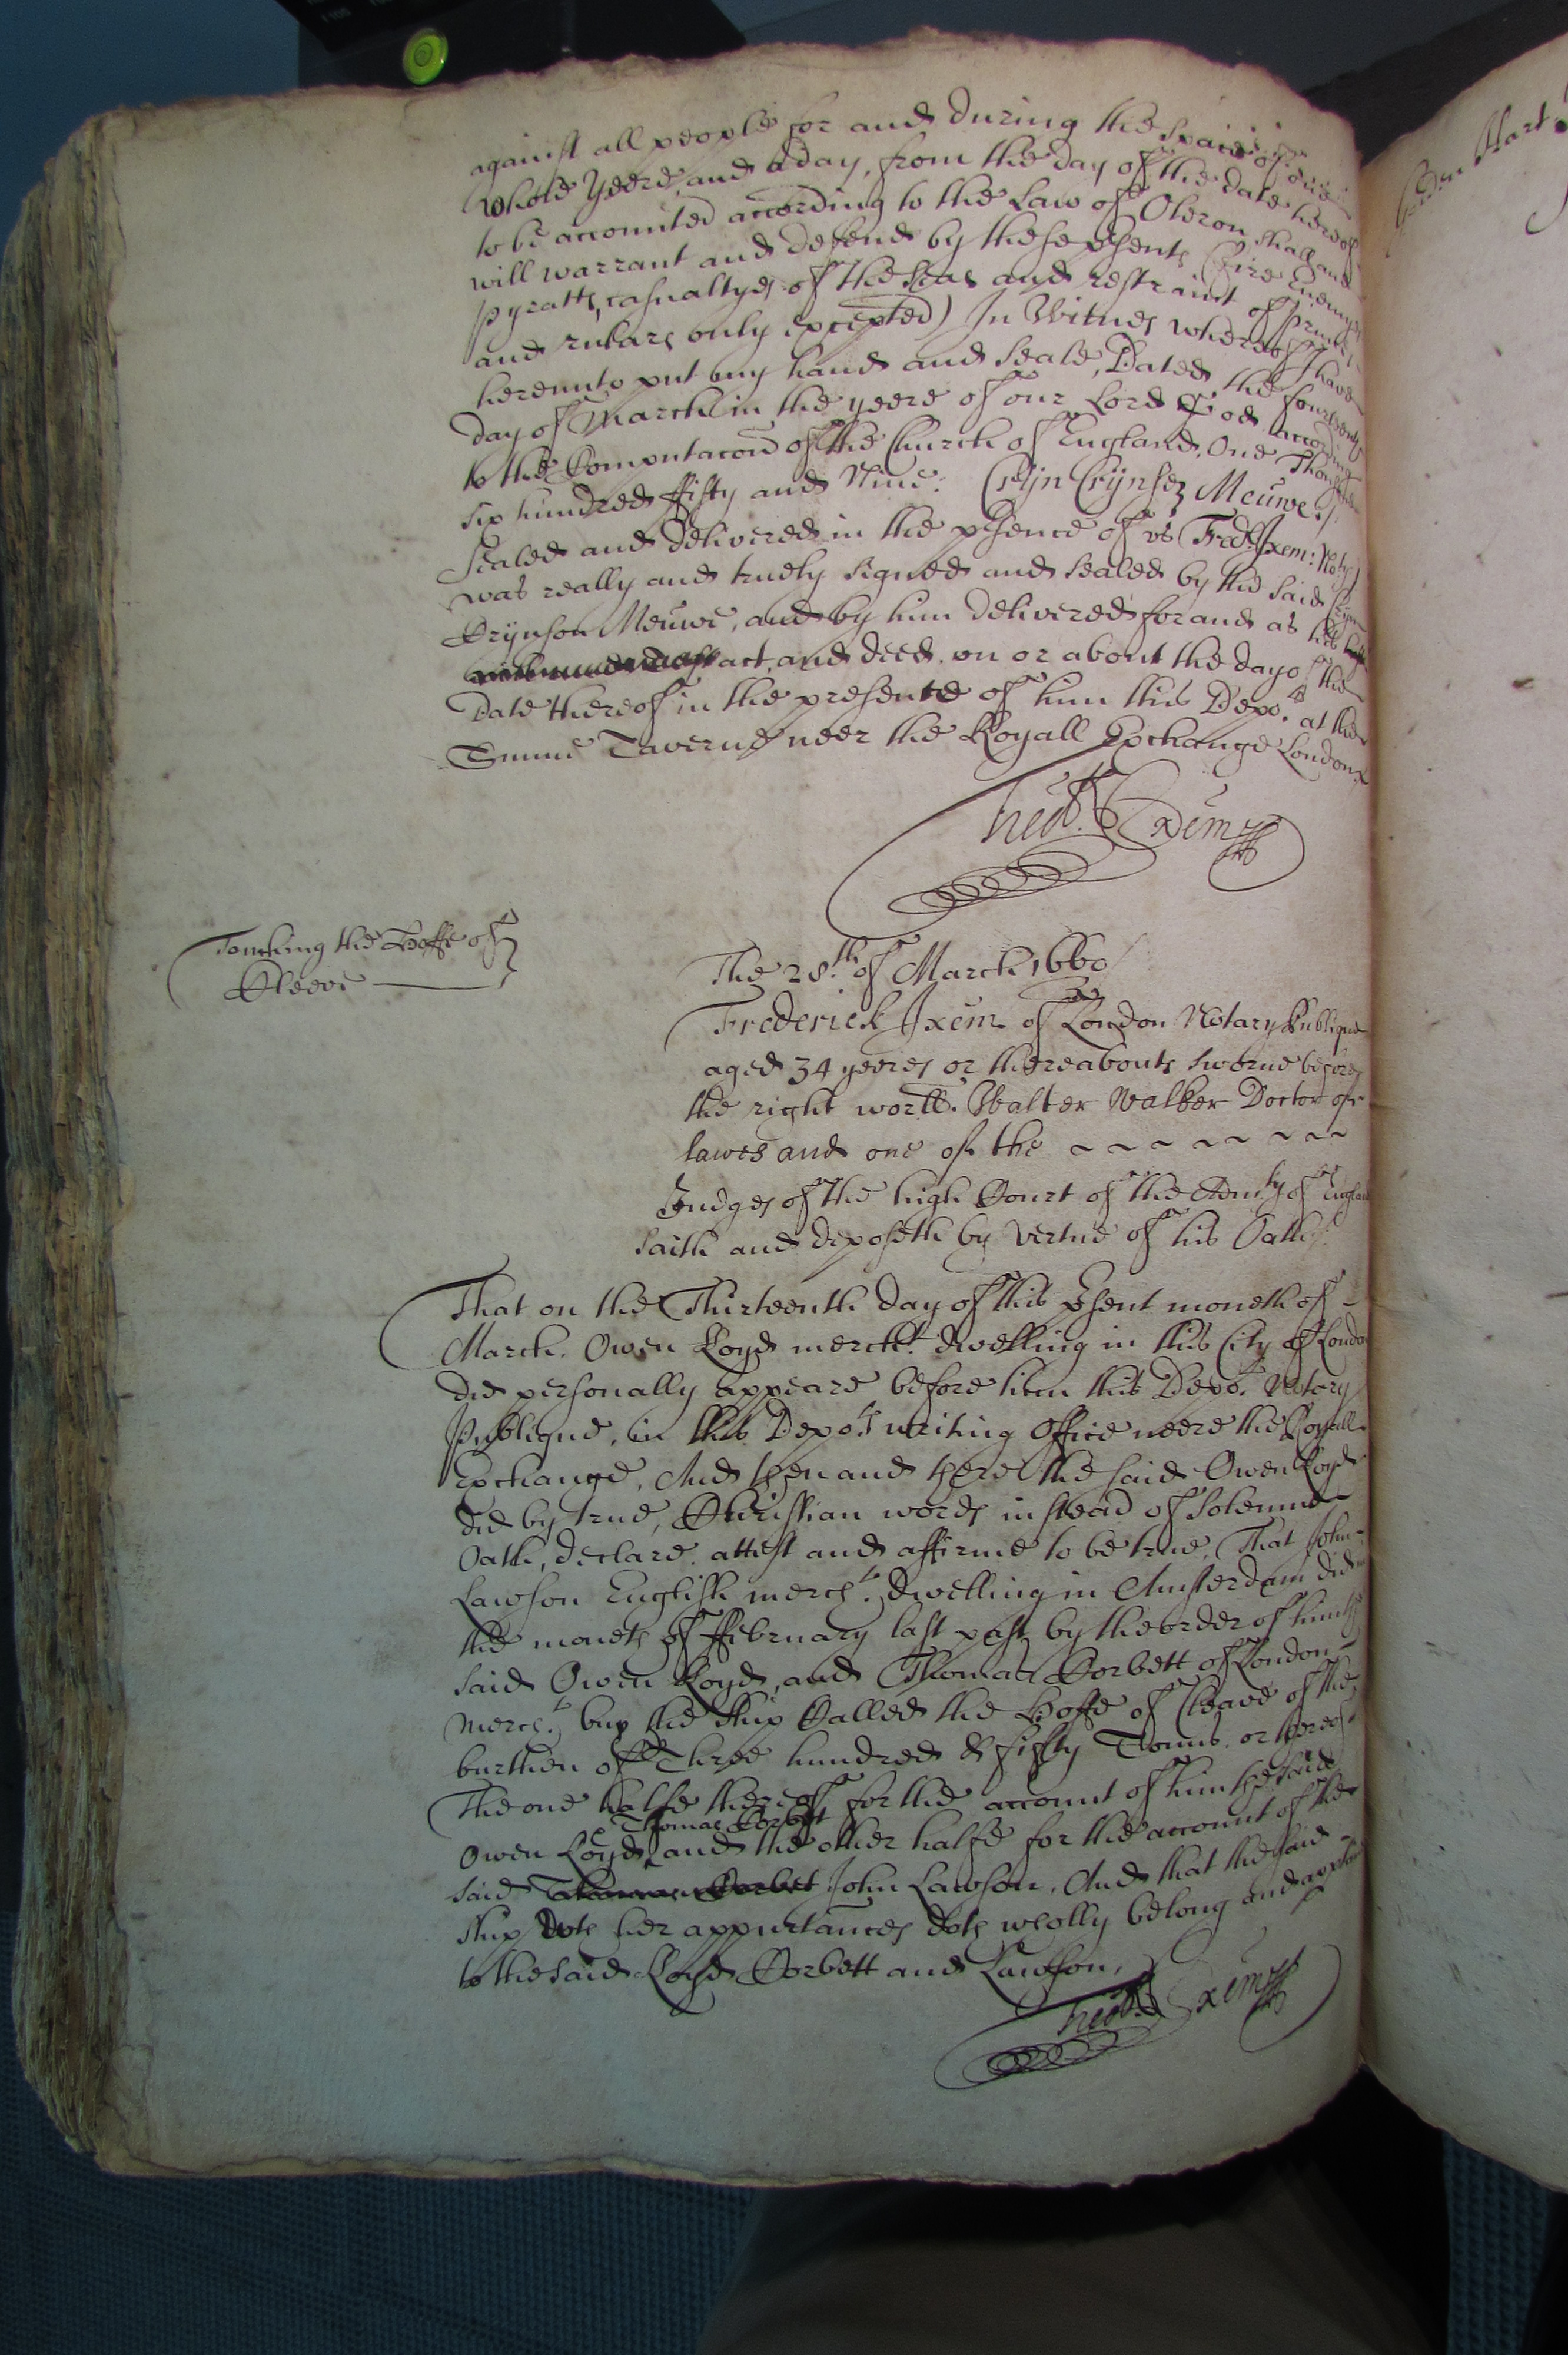 against all people for and during the space of one
whole yeere, and a day, from the day of the date hereof
to be accounted according to the Law of Oleron shall and
will warrant and defend by these psents (fire Enemyes
pyratts, casualtyes of the seas and restraint of princes
and rulars only excepted) In Witnes whereof I have
hereunto put my hand and seale, Dated the fourteenth
day of March in the yeere of our Lord God according
to the Computacon of the Church of England, One Thousand
six hundred ffifty and Nine: Crijn Crijnsez Meuwe./
Sealed and delivered in the psence of vs Fredk Ixem: Noty)
was really and truely signed and sealed by the said Crijn
Crijnson Meuwe, and by him delivered for and as his
act and deed. on or about the day of the
Date thereof in the presente of him this Depot. at the
Tavern neer the Royall Exchange London.
Fredk. Ixem
Touching the Hoffe of
Cleeve
The 28th of March 1660/
Frederick Ixem of London Notary Publique
aged 34 yeeres or thereabouts sworne before
the right worll. Walter Walker Doctor of
lawes and one of the ~ ~ ~ ~ ~ ~ ~
Judges of the high Court of the Admlty of England
saith and deposeth by vertue of his Oath./
That on the Thirteenth day of this psent moneth of
March. Owen Loyd mercht. dwelling in this City of London
did personally appeare before him this Depot. Notary
Publique, in this Depots. writing Office neere the Royall
Exchange, And then and there the said Owen Loyd
did by true, Christian words in stead of solemne
Oath, declare attest and affirme to be true, That John
Lawson English mercht. dwelling in Amsterdam did in
the moneth of ffebruary last past by the order of him the
said Owen Loyd, and Thomas Corbett of London
mercht. buy the ship Called the Hoffe of Cleave of the
burthen of Three hundred & fifty Tonns. or thereof
The one halfe thereof for the account of him the said
Thomas Corbet
Owen Loyd, and the other halfe for the account of the
said Thomas Corbet John Lawson, And that the said
ship her appurtances doth wholly belong and
to the said Loyd Corbett and Lawson.
Fredk. Ixem